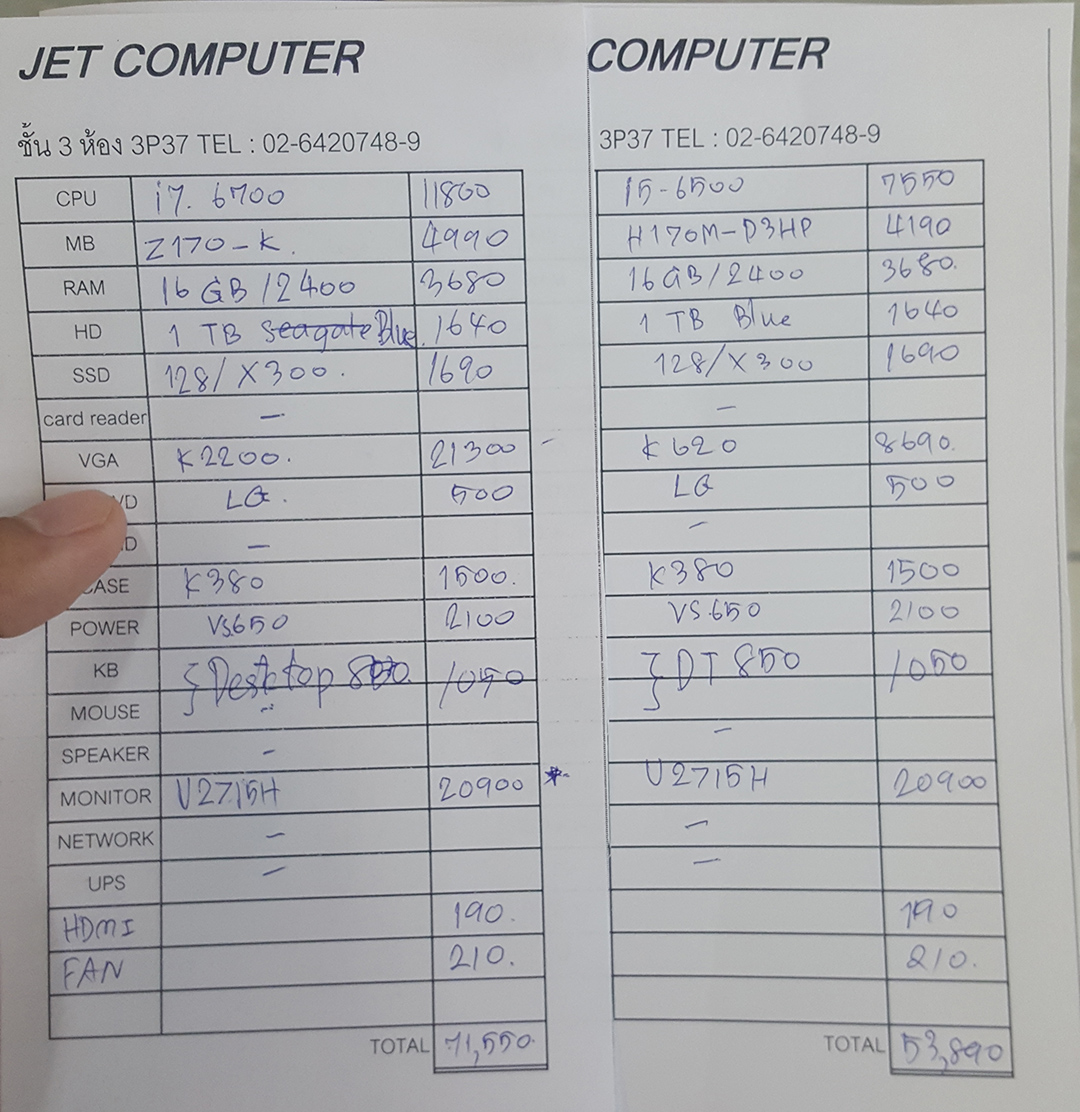 JET COMPUTER
ชั้น 3 ห้อง 3P37 TEL : 02-6420748-9
CPU i7. 6700 11800
MB Z170-K. 4990
RAM 16 GB /2400 3680
HD 1 TB Seagate Blue. 1640
SSD 128/X300. 1690
card reader —
VGA K2200. 21300
VD LG. 500
D —
CASE K380 1500.
POWER VS650 2100
KB } Desktop 800. 1050
MOUSE
SPEAKER -
MONITOR U2715H 20900 *
NETWORK -
UPS -
HDMI 190.
FAN 210.
TOTAL 71,550.
COMPUTER
3P37 TEL : 02-6420748-9
i5-6500 7550
H170M-D3HP 4190
16GB/2400 3680.
1 TB Blue 1640
128/X300 1690
—
K620 8690.
LG 500
-
K380 1500
VS.650 2100
} DT 850 1050
-
U2715H 20900
-
-
190
210.
TOTAL 53,890